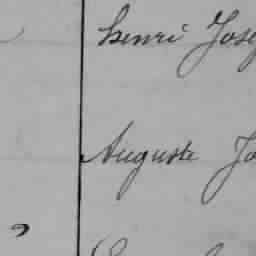 henri Jose
Auguste Jo